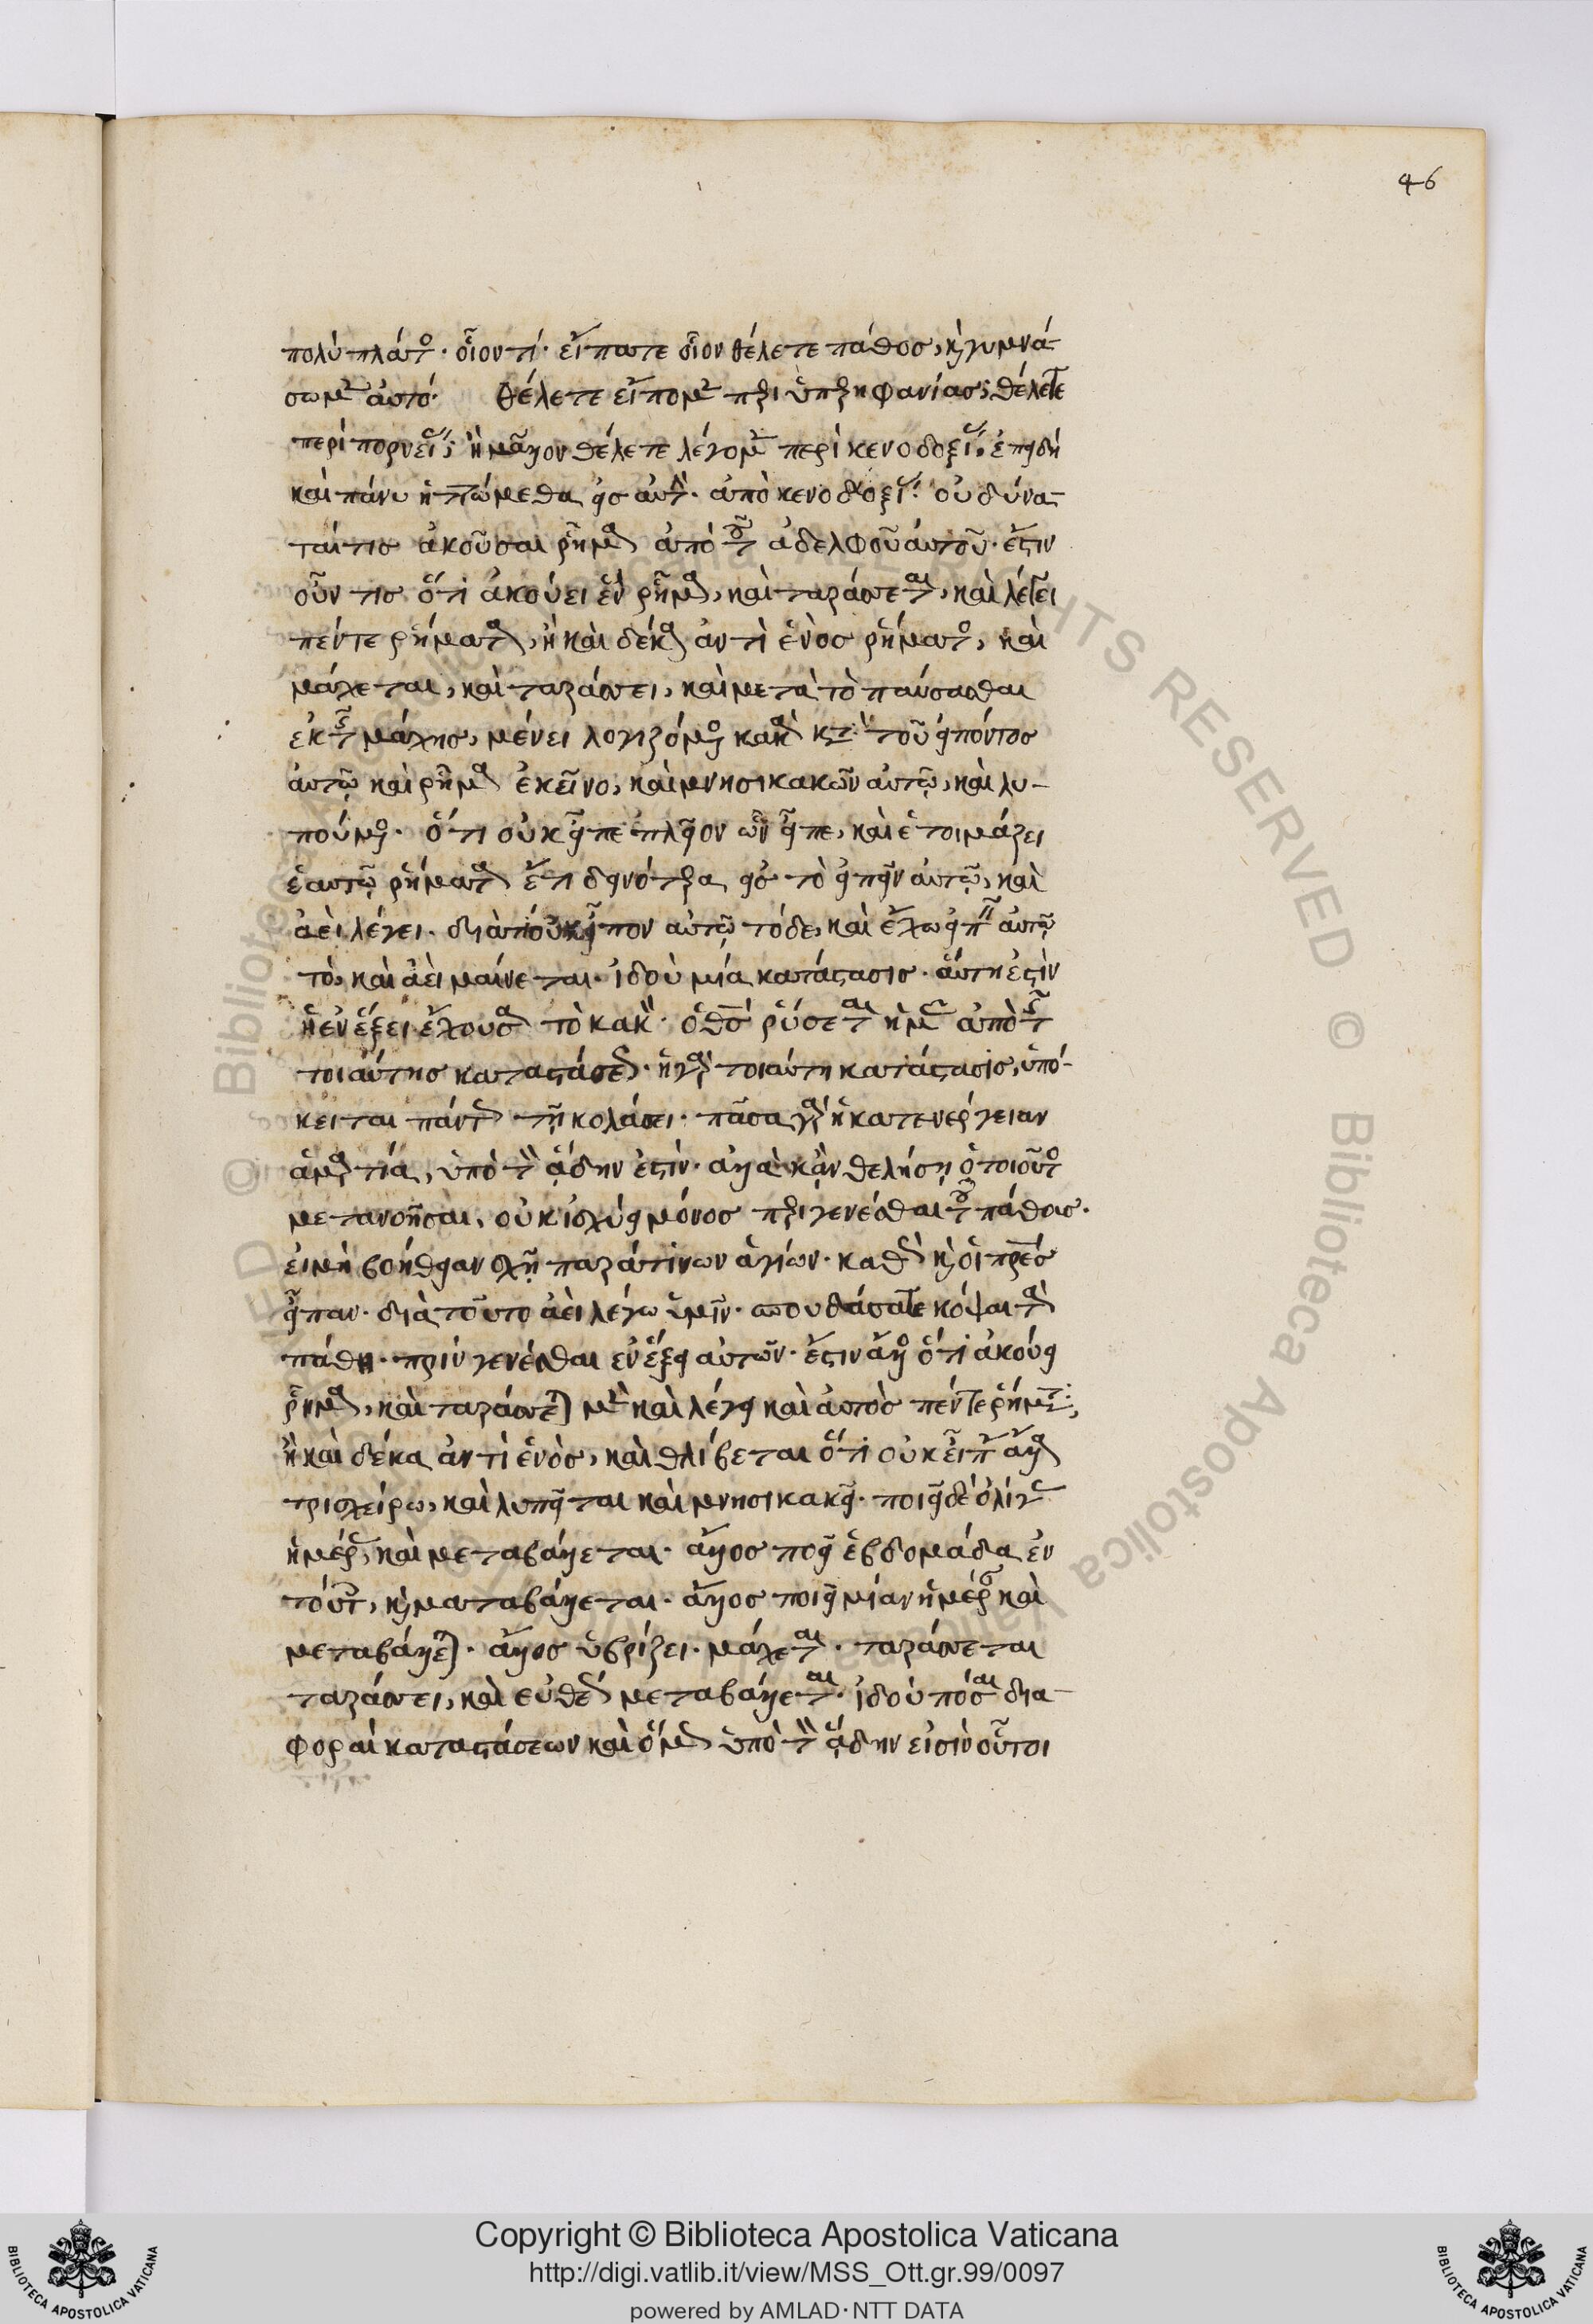 46
πολὺ πλάτος· οἷον τί· εἴπατε οἷον θέλετε πάθος, καὶ γυμνά-
σωμεν αὐτό· θέλετε εἴπομεν περὶ ὑπερηφανίας; θέλετε
περὶ πορνείας; ἢ μᾶλλον θέλετε λέγομεν περὶ κενοδοξίας, ἐπειδὴ
καὶ πάνυ ἡττώμεθα εἰς αὐτήν· ἀπὸ κενοδοξίας οὐ δύνα-
ταί τις ἀκοῦσαι ῥῆμα ἀπὸ τοῦ ἀδελφοῦ αὐτοῦ· ἔστιν
οὖν τις ὅτι ἀκούει ἓν ῥῆμα, καὶ ταράσσεται, καὶ λέγει
πέντε ῥήματα, ἢ καὶ δέκα ἀντὶ ἑνὸς ῥήματος, καὶ
μάχεται, καὶ ταράσσει, καὶ μετὰ τὸ παύσασθαι
ἐκ τῆς μάχης, μένει λογιζόμενος κακὰ κατὰ τοῦ εἰπόντος
αὐτῷ καὶ ῥῆμα ἐκεῖνο, καὶ μνησικακῶν αὐτῷ, καὶ λυ-
πούμενος· ὅτι οὐκ εἶπε πλεῖον ὧν εἶπε, καὶ ἑτοιμάζει
ἑαυτῷ ῥήματα ἔτι δεινότερα εἰς τὸ εἰπεῖν αὐτῷ, καὶ
ἀεὶ λέγει· διατί οὐκ εἶπον αὐτῷ τόδε, καὶ ἔχω εἰπεῖν αὐτῷ
τὸ, καὶ ἀεὶ μαίνεται· ἰδοὺ μία κατάστασις· αὕτη ἐστὶν
ἡ ἐν ἕξει ἔχουσα τὸ κακόν· ὁ θεὸς ῥύσεται ἡμᾶς ἀπὸ τῆς
τοιαύτης καταστάσεως· ἡ γὰρ τοιαύτη κατάστασις, ὑπό-
κειται πάντως τῇ κολάσει· πᾶσα γὰρ ἡ κατενέργειαν
ἁμαρτία, ὑπὸ τὸν ᾅδην ἐστίν· ἀλλὰ κἂν θελήσῃ ὁ τοιοῦτος
μετανοῆσαι, οὐκ ἰσχύει μόνος περιγενέσθαι τοῦ πάθους·
εἰ μὴ βοήθειαν σχῇ παρά τινων ἁγίων· καθὼς καὶ οἱ πατέρες
εἶπαν· διὰ τοῦτο ἀεὶ λέγω ὑμῖν· σπουδάσατε κόψαι τὰ
πάθη· πρὶν γενέσθαι ἐν ἕξει αὐτῶν· ἔστιν ἄλλος ὅτι ἀκούει
ῥῆμα, καὶ ταράσσεται μὲν καὶ λέγει καὶ αὐτὸς πέντε ῥήματα,
ἢ καὶ δέκα ἀντὶ ἑνὸς, καὶ θλίβεται ὅτι οὐκ εἶπεν ἄλλα
τρισχείρω, καὶ λυπεῖται καὶ μνησικακεῖ· ποιεῖ δὲ ὀλίγας
ἡμέρας, καὶ μεταβάλλεται· ἄλλος ποιεῖ ἑβδομάδα ἐν
τούτῳ, καὶ ματαβάλλεται· ἄλλος ποιεῖ μίαν ἡμέραν καὶ
μεταβάλλεται· ἄλλος ὑβρίζει· μάχεται· ταράσσεται
ταράσσει, καὶ εὐθέως μεταβάλλεται· ἰδοὺ πόσαι δια-
φοραὶ καταστάσεων καὶ ὅμως ὑπὸ τὸν ᾅδην εἰσὶν οὗτοι
Copyright © Biblioteca Apostolica Vaticana
http://digi.vatlib.it/view/MSS_Ott.gr.99/0097
powered by AMLAD·NTT DATA